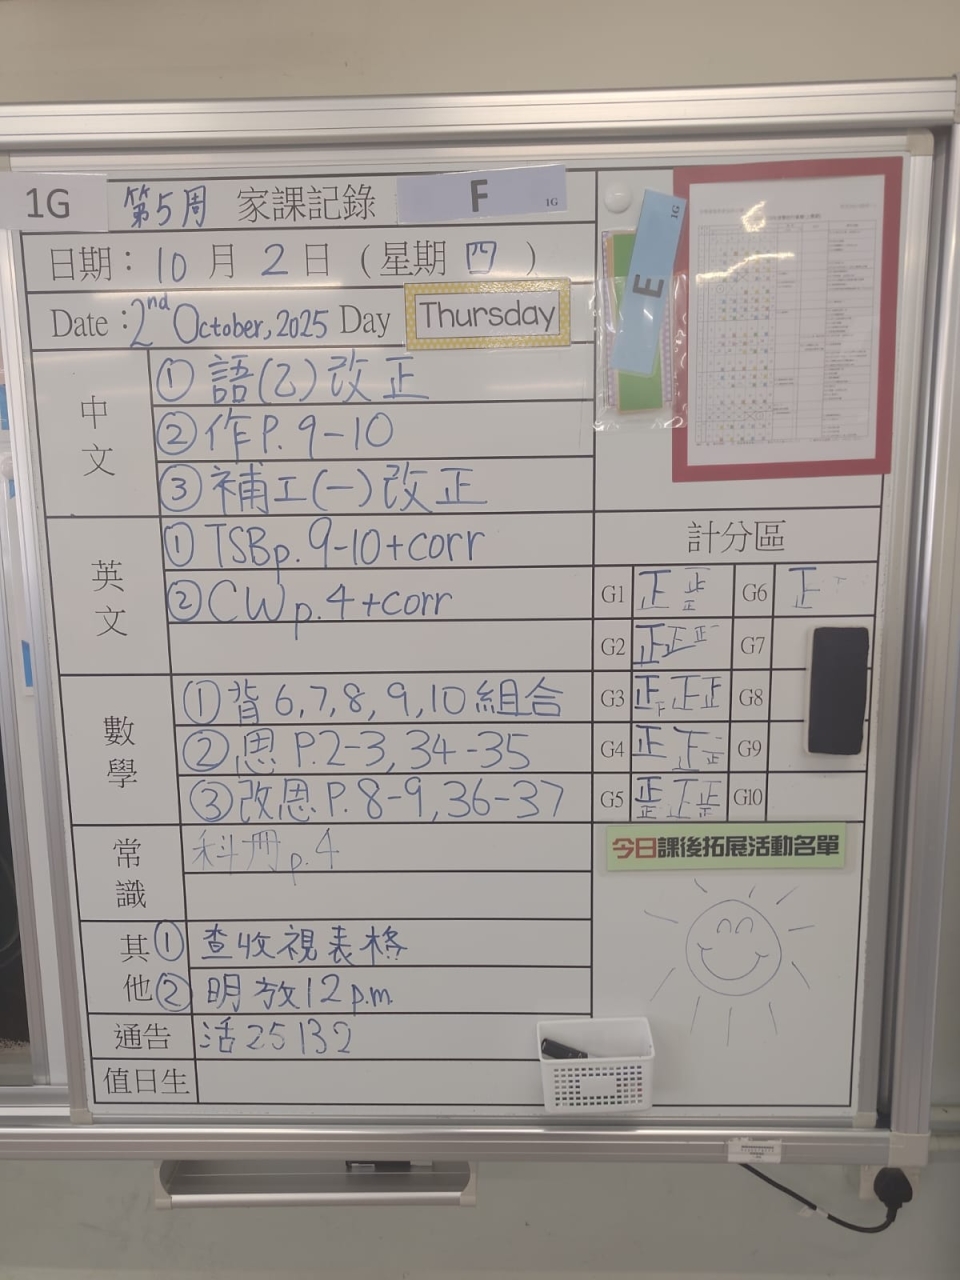 1G 第5周 家課記錄 F 1G
日期：10月2日（星期四）
Date：2nd October, 2025 Day Thursday
中文
①語(乙)改正
②作P. 9-10
③補工(一)改正
英文
①TSBp. 9-10+corr
②CWp. 4+corr
數學
①背6,7,8,9,10組合
②思P.2-3, 34-35
③改思P. 8-9, 36-37
常識
科冊p. 4
其他
①查收視表格
②明放12p.m.
通告 活25132
值日生
1G
E
計分區
G1 正 正 G6
G2 正正正 G7
G3 正 正正 G8
G4 正 正 G9
G5 正 正正 G10
今日課後拓展活動名單